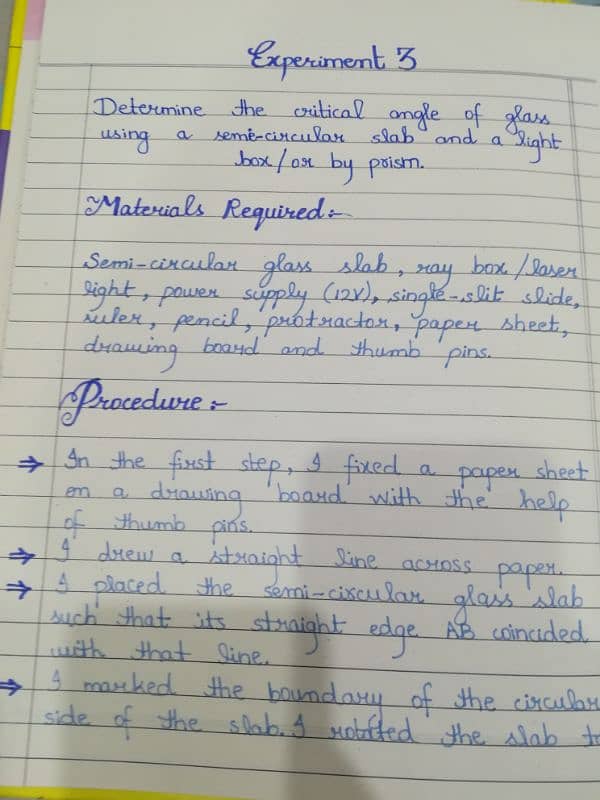 Experiment 3
Determine the critical angle of glass
using a semi-circular slab and a light
box/or by prism.
Materials Required:-
Semi-circular glass slab, ray box/laser
light, power supply (12V), single-slit slide,
ruler, pencil, protractor, paper sheet,
drawing board and thumb pins.
Procedure:-
⇒ In the first step, I fixed a paper sheet
on a drawing board with the help
of thumb pins.
⇒ I drew a straight line across paper.
⇒ I placed the semi-circular glass slab
such that its straight edge AB coincided
with that line.
⇒ I marked the boundary of the circular
side of the slab. I the slab to